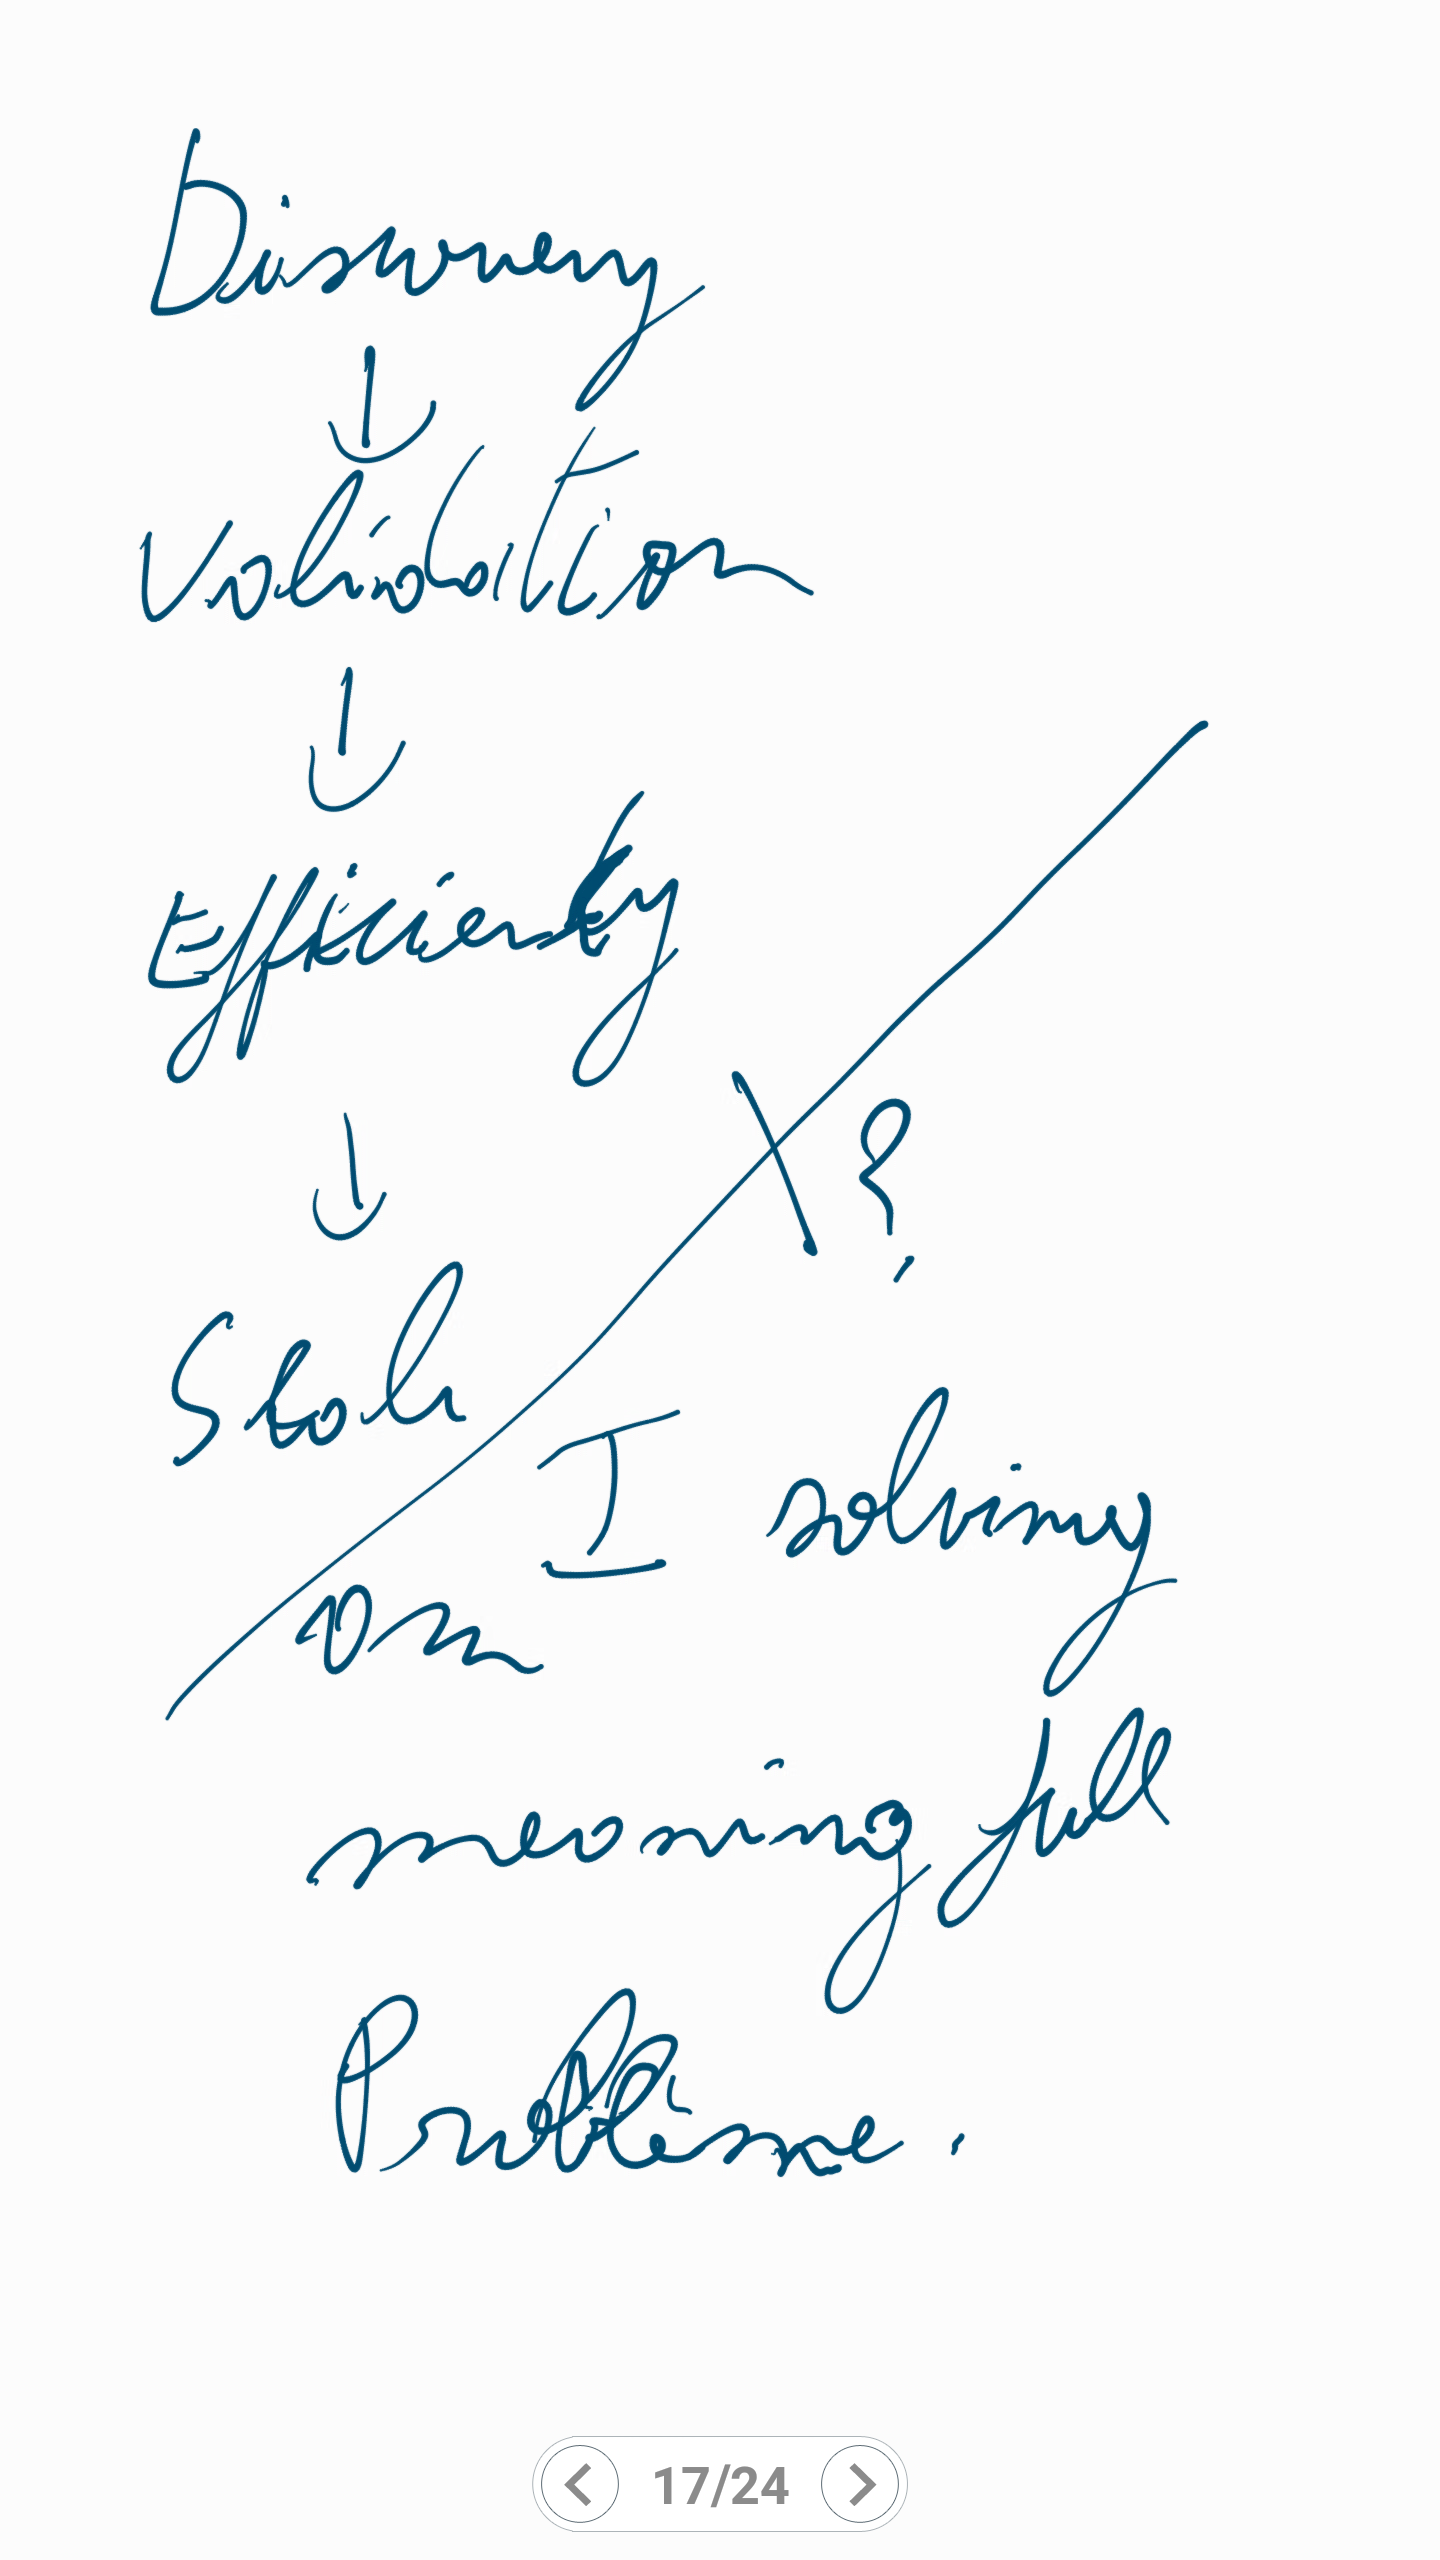 Discovery
↓
Validation
↓
Efficiency
↓
X ?
am I solving
meaning full
Probleme.
17/24